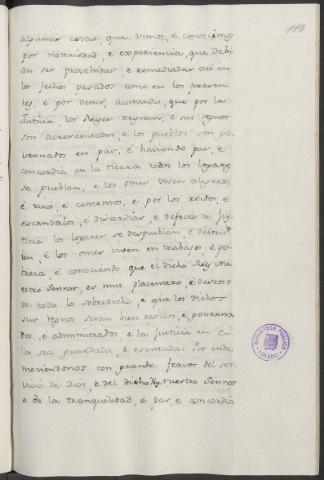 118
algunas cosas, que vimos, é conoscimos
por notoriedad, é experiencia, que debi-
an ser provehidas, é remediadas asi en
los fechos pasados como en los presen-
tes, é por venir, acatando, que por la
Justicia, los Reyes reynan, é sus regnos
son acrecentados, é los pueblos son go-
vernados en paz, é haviendo paz, é
concordia en la tierra todos los logares
se pueblan, é los omes viven alegres,
é ricos é contentos, é por los roidos, é
escandalos, é discordias, é defecto de Jus-
ticia los logares se despueblan, é destru-
len, é los omes viven en trabajos, é po-
breza, é conociendo que el dicho Rey Nu-
estro Sennor, es muy placentero, é deseoso
de todo lo sobredicho, é que los dichos
sus regnos sean bien regidos, é governa-
dos, é administrados é la Justicia en e-
llos sea guardada, é esecutada: Por ende
moviendonos con grande fervor del ser-
vicio de Dios, é del dicho Rey Nuestro Sennor
é de la tranquilidad, é paz, é concordia
BIBLIOTECA PUBLICA
TOLEDO